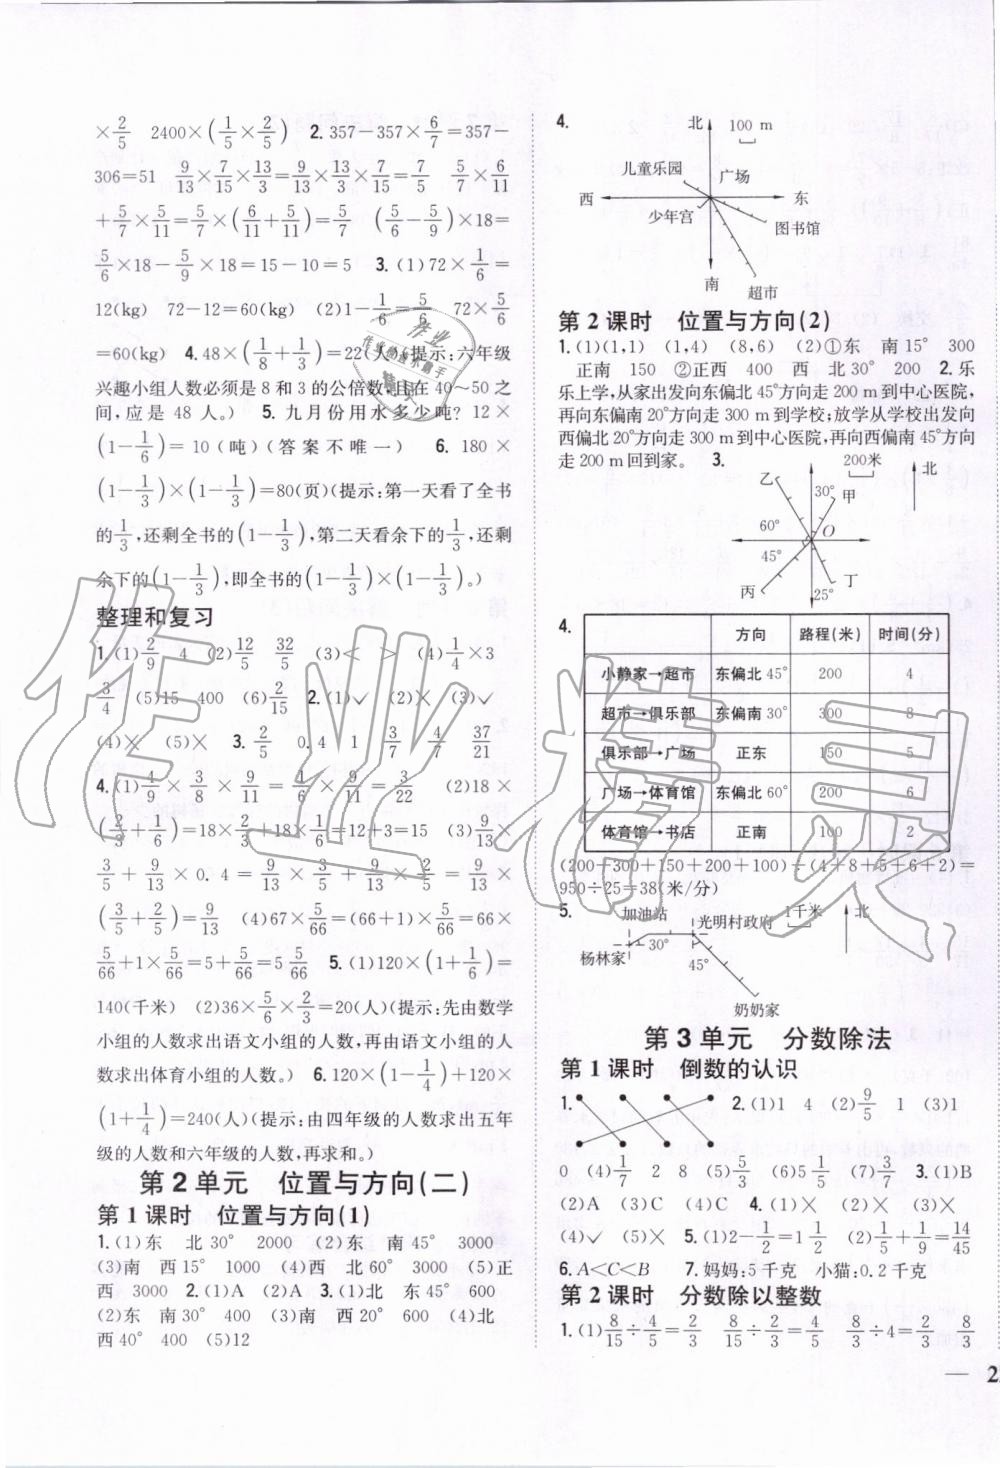 ×2/5　2400×(1/5×2/5)　2.357-357×6/7=357-
306=51　9/13×7/15×13/3=9/13×13/3×7/15=7/5　5/7×6/11
+5/7×5/11=5/7×(6/11+5/11)=5/7　(5/6-5/9)×18=
5/6×18-5/9×18=15-10=5　3.(1)72×1/6=
12(kg)　72-12=60(kg)　(2)1-1/6=5/6　72×5/6
=60(kg)　4.48×(1/8+1/3)=22(人)(提示:六年级
兴趣小组人数必须是8和3的公倍数,且在40~50之
间,应是48人。)　5.九月份用水多少吨?　12×
(1-1/6)=10(吨)(答案不唯一)　6.180×
(1-1/3)×(1-1/3)=80(页)(提示:第一天看了全书
的1/3,还剩全书的(1-1/3),第二天看余下的1/3,还剩
余下的(1-1/3),即全书的(1-1/3)×(1-1/3)。)
整理和复习
1.(1)2/9　4　(2)12/5　32/5　(3)<　>　(4)1/4×3
3/4　(5)15　400　(6)2/15　2.(1)√　(2)×　(3)√
(4)×　(5)×　3.2/5　0.4　1　3/7　4/7　37/21
4.(1)4/9×3/8×9/11=1/6×9/11=3/22　(2)18×
(2/3+1/6)=18×2/3+18×1/6=12+3=15　(3)9/13×
3/5+9/13×0.4=9/13×3/5+9/13×2/5=9/13×
(3/5+2/5)=9/13　(4)67×5/66=(66+1)×5/66=66×
5/66+1×5/66=5+5/66=5 5/66　5.(1)120×(1+1/6)=
140(千米)　(2)36×5/6×2/3=20(人)(提示:先由数学
小组的人数求出语文小组的人数,再由语文小组的人
数求出体育小组的人数。)　6.120×(1-1/4)+120×
(1+1/4)=240(人)(提示:由四年级的人数求出五年
级的人数和六年级的人数,再求和。)
第2单元　位置与方向(二)
第1课时　位置与方向(1)
1.(1)东　北30°　2000　(2)东　南45°　3000
(3)南　西15°　1000　(4)西　北60°　3000　(5)正
西　3000　2.(1)A　(2)A　3.(1)北　东45°　600
(2)东　南30°　400　(3)南　西20°　600　(4)北
西40°　400　(5)12
4.
北　100 m
儿童乐园　广场
西　东
少年宫　图书馆
南　超市
第2课时　位置与方向(2)
1.(1)(1,1)　(1,4)　(8,6)　(2)①东　南15°　300
正南　150　②正西　400　西　北30°　200　2.乐
乐上学,从家出发向东偏北45°方向走200 m到中心医院,
再向东偏南20°方向走300 m到学校;放学从学校出发向
西偏北20°方向走300 m到中心医院,再向西偏南45°方向
走200 m回到家。　3.
200米　北
乙　30°　甲
60°　O
45°
丙　25°　丁
4.
方向　路程(米)　时间(分)
小静家→超市　东偏北45°　200　4
超市→俱乐部　东偏南30°　300　8
俱乐部→广场　正东　150　5
广场→体育馆　东偏北60°　200　6
体育馆→书店　正南　100　2
(200+300+150+200+100)÷(4+8+5+6+2)=
950÷25=38(米/分)
5.
加油站　光明村政府　1千米　北
杨林家　30°　45°
奶奶家
第3单元　分数除法
第1课时　倒数的认识
1.　2.(1)1　4　(2)9/5　1　(3)1
0　(4)1/7　2　8　(5)5/3　(6)5 1/5　(7)3/7　3.(1)B
(2)A　(3)C　(4)C　4.(1)×　(2)×　(3)×
(4)√　(5)×　5.(1)2-1/2=1 1/2　(2)1/5+1/9=14/45
6.A<C<B　7.妈妈:5千克　小猫:0.2千克
第2课时　分数除以整数
1.(1)8/15÷4/5=2/3　8/15÷2/3=4/5　8/3÷4=2/3　8/3
作业
作业的好帮手
作业精灵